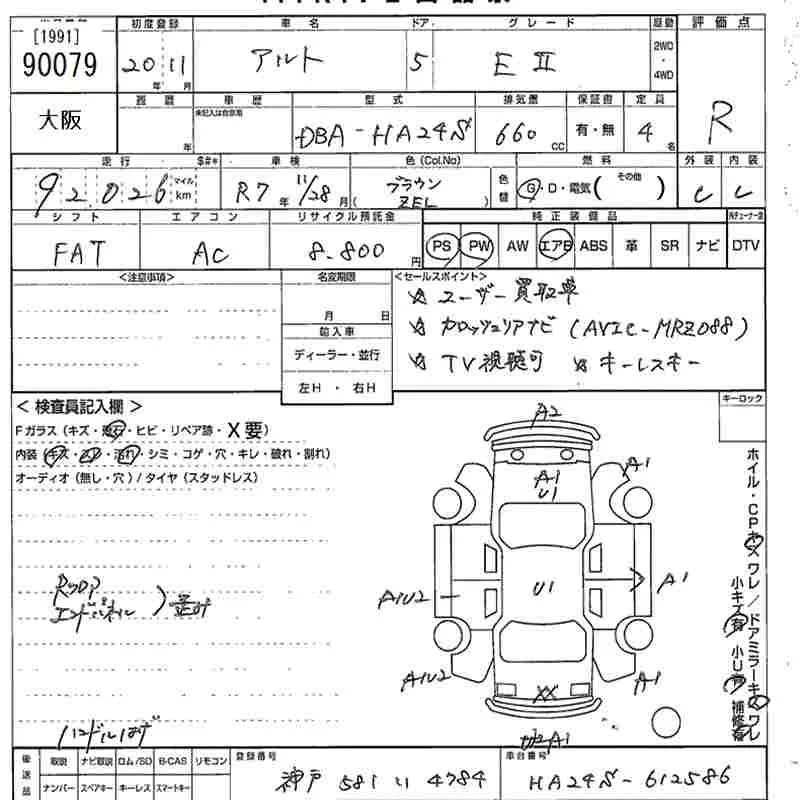 [1991]
90079
初度登録 車名 ドア グレード 駆動 評価点
20 年 11 月 アルト 5 E II 2WD・4WD R
大阪
履歴 車歴 型式 排気量 保証書 定員
年 未記入は自家用 DBA-HA24S 660 CC 有・無 4名
走行 $#* 車検 色(Col.No) 燃料 外装 内装
92,026 マイル km R7年 11/28月 ( ブラウン ZEL ) 色替 G・D・電気( その他 ) C C
シフト エアコン リサイクル預託金 純正装備品
FAT AC 8.800円 PS PW AW エアB ABS 革 SR ナビ DTV
<注意事項> 名変期限 <セールスポイント>
月 日
輸入車
ディーラー・並行
左H ・ 右H
☆ ユーザー買取車
☆ カロッツェリアナビ (AVIC-MRZ088)
☆ TV視聴可 ☆ キーレスキー
キーロック
< 検査員記入欄 >
Fガラス (キズ・飛石・ヒビ・リペア跡・X要)
内装 (キズ・スレ・汚れ・シミ・コゲ・穴・キレ・破れ・割れ)
オーディオ (無し・穴) / タイヤ (スタッドレス)
A2
A1
U1
A1
A1U2
U1
A1
A1U2
XX
A1
A1
ホイル・CPキズ ワレ/ドアミラーキズ ワレ
小キズ有 小U有 補修有
Rッカア
エンドパネル ) 歪み
ハンドルはげ
後送品 取説 ナビ取説 ロム/SD B-CAS リモコン
ナンバー スペアキー キーレス スマートキー
登録番号 神戸 581 い 4784
車台番号 HA24S-612586